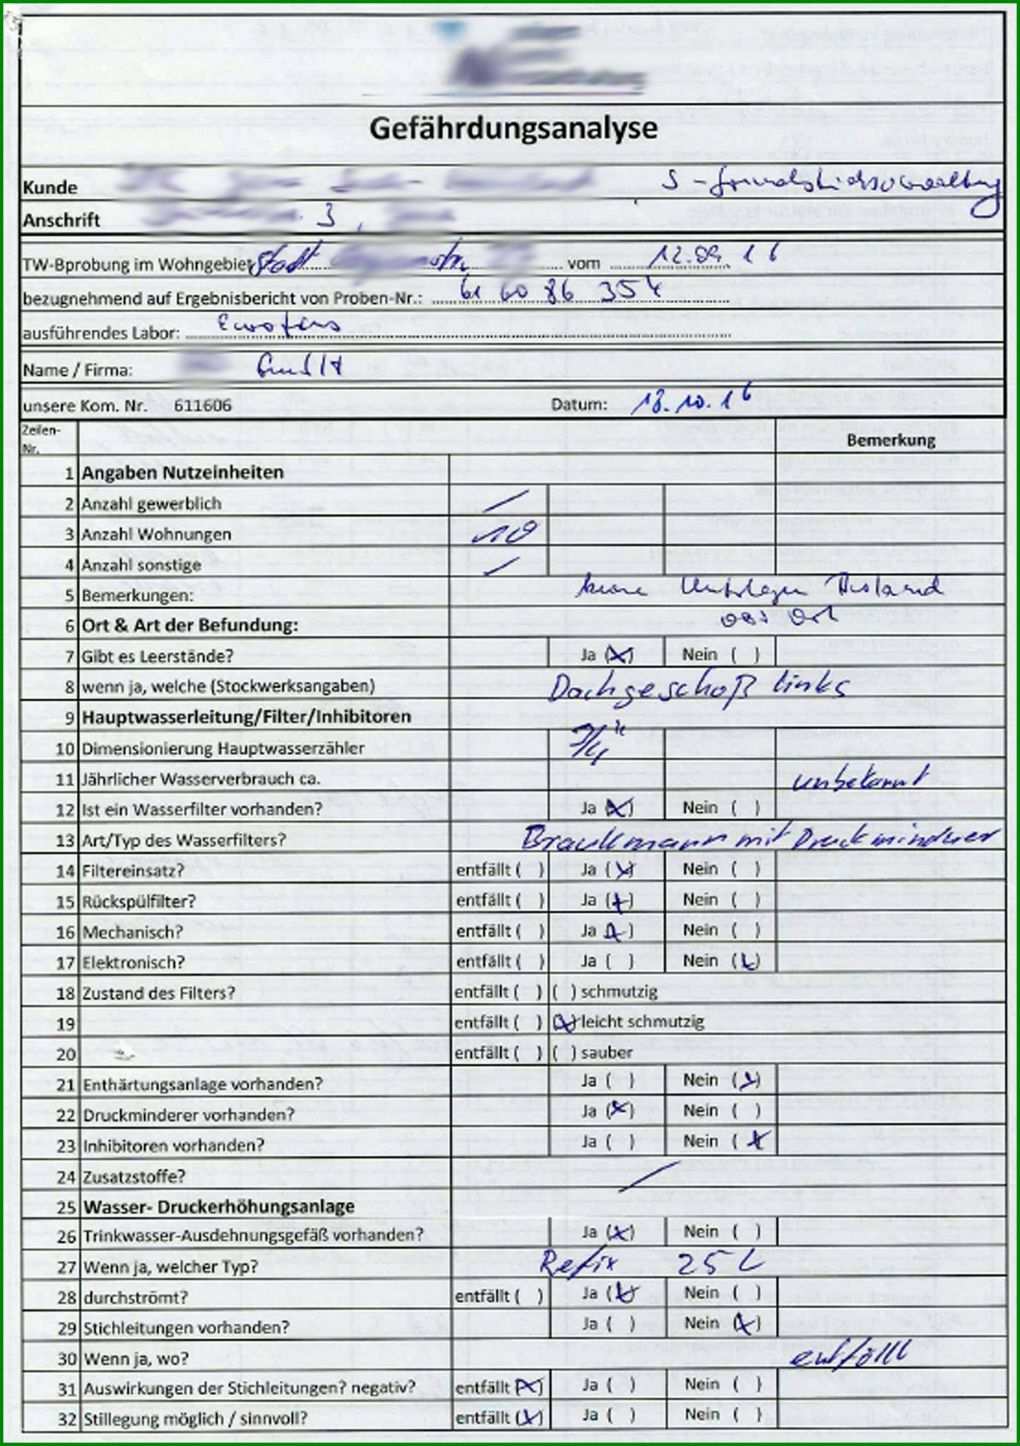 Gefährdungsanalyse
Kunde
Anschrift 3,
TW-Bprobung im Wohngebiet Stadt str. vom 12.09.16
bezugnehmend auf Ergebnisbericht von Proben-Nr.: 61 60 86 354
ausführendes Labor: Eurofins
Name / Firma: GmbH
unsere Kom. Nr. 611606 Datum: 13.10.16
Zeilen-
Nr. Bemerkung
1 Angaben Nutzeinheiten
2 Anzahl gewerblich /
3 Anzahl Wohnungen 10
4 Anzahl sonstige /
5 Bemerkungen: keine Unterlagen
6 Ort & Art der Befundung: vor Ort
7 Gibt es Leerstände? Ja (x) Nein ( )
8 wenn ja, welche (Stockwerksangaben) Dachgeschoß links
9 Hauptwasserleitung/Filter/Inhibitoren
10 Dimensionierung Hauptwasserzähler
11 Jährlicher Wasserverbrauch ca. unbekannt
12 Ist ein Wasserfilter vorhanden? Ja (x) Nein ( )
13 Art/Typ des Wasserfilters? Braukmann mit Druckminderer
14 Filtereinsatz? entfällt ( ) Ja (x) Nein ( )
15 Rückspülfilter? entfällt ( ) Ja (x) Nein ( )
16 Mechanisch? entfällt ( ) Ja (x) Nein ( )
17 Elektronisch? entfällt ( ) Ja ( ) Nein (x)
18 Zustand des Filters? entfällt ( ) ( ) schmutzig
19 entfällt ( ) (x) leicht schmutzig
20 entfällt ( ) ( ) sauber
21 Enthärtungsanlage vorhanden? Ja ( ) Nein (x)
22 Druckminderer vorhanden? Ja (x) Nein ( )
23 Inhibitoren vorhanden? Ja ( ) Nein (x)
24 Zusatzstoffe? /
25 Wasser- Druckerhöhungsanlage
26 Trinkwasser-Ausdehnungsgefäß vorhanden? Ja (x) Nein ( )
27 Wenn ja, welcher Typ? Refix 25 L
28 durchströmt? entfällt ( ) Ja (x) Nein ( )
29 Stichleitungen vorhanden? Ja ( ) Nein (x)
30 Wenn ja, wo? entfällt
31 Auswirkungen der Stichleitungen? negativ? entfällt (x) Ja ( ) Nein ( )
32 Stillegung möglich / sinnvoll? entfällt (x) Ja ( ) Nein ( )